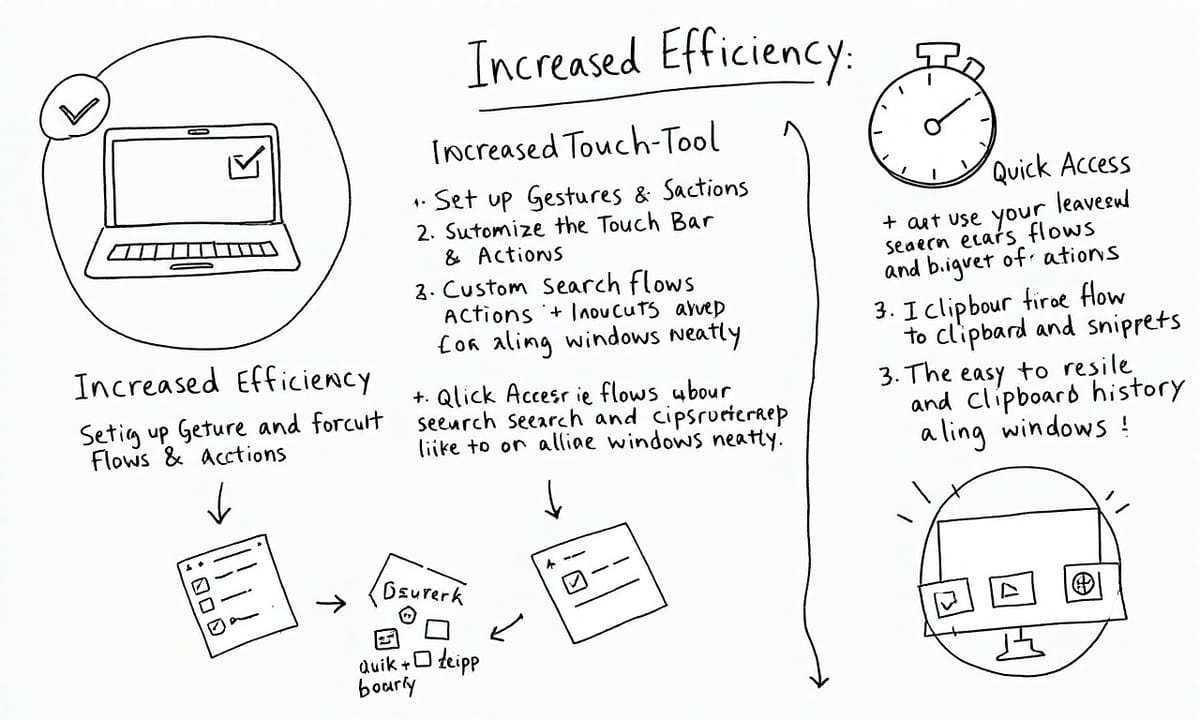 Increased Efficiency:
Increased Efficiency
Setiig up Geture and forcult
Flows & Acctions
Increased Touch-Tool
1. Set up Gestures & Sactions
2. Sutomize the Touch Bar
& Actions
3. Custom Search flows
Actions + Inoucuts
for aling windows neatly
+. Qlick Accesr ie flows
seeurch seearch and
liike to or alline windows neatly.
Quick Access
+ aut use your
flows
and of ations
3. I clipbour firoe flow
to clipbard and snippets
3. The easy to resile
and clipboard history
aling windows !
quik +